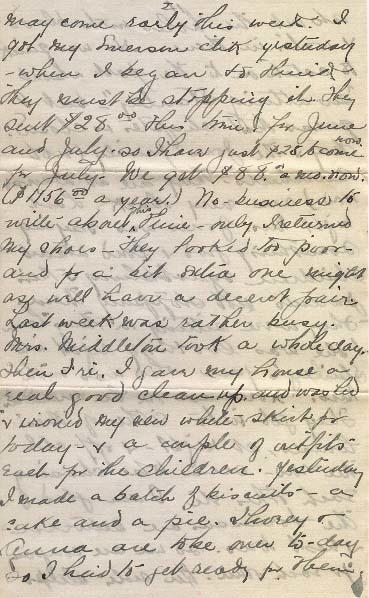 may come early this week. I
got my Emerson chk yesterday
- when I began to think
they must be stopping it. They
sent $28.00 this time for June
and July. so I have just $28 to come now
for July. We get $88.00 a mo. now.
($1156.00 a year.) No business to
write about this time - only I returned
my shoes - They looked too poor -
and for a bit extra one might
as well have a decent pair.
Last week was rather busy.
Mrs. Middleton took a whole day.
then Fri. I gave my house a
real good clean up and washed
& ironed my new white skirt for
today - & a couple of outfits
each for the children. Yesterday
I made a batch of biscuits - a
cake and a pie. &
Anna are to be over to-day
so I had to get ready for them.